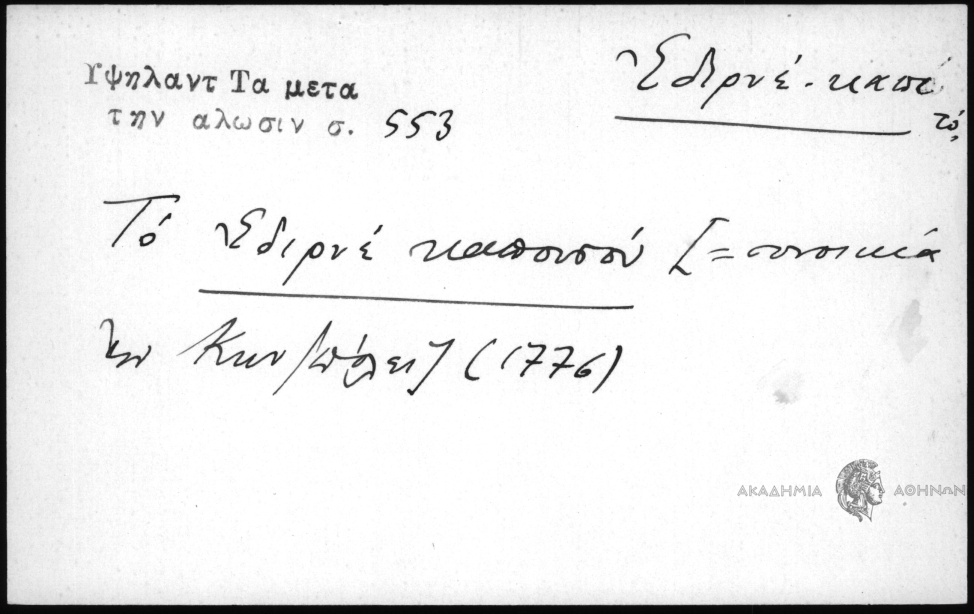 Υψηλαντ Τα μετα
την αλωσιν σ. 553
Ἐδιρνέ-καπί
τό,
Τό Ἐδιρνέ καπουσού [= συνοικία
ἐν Κων/πόλει] (1776)
ΑΚΑΔΗΜΙΑ ΑΘΗΝΩΝ